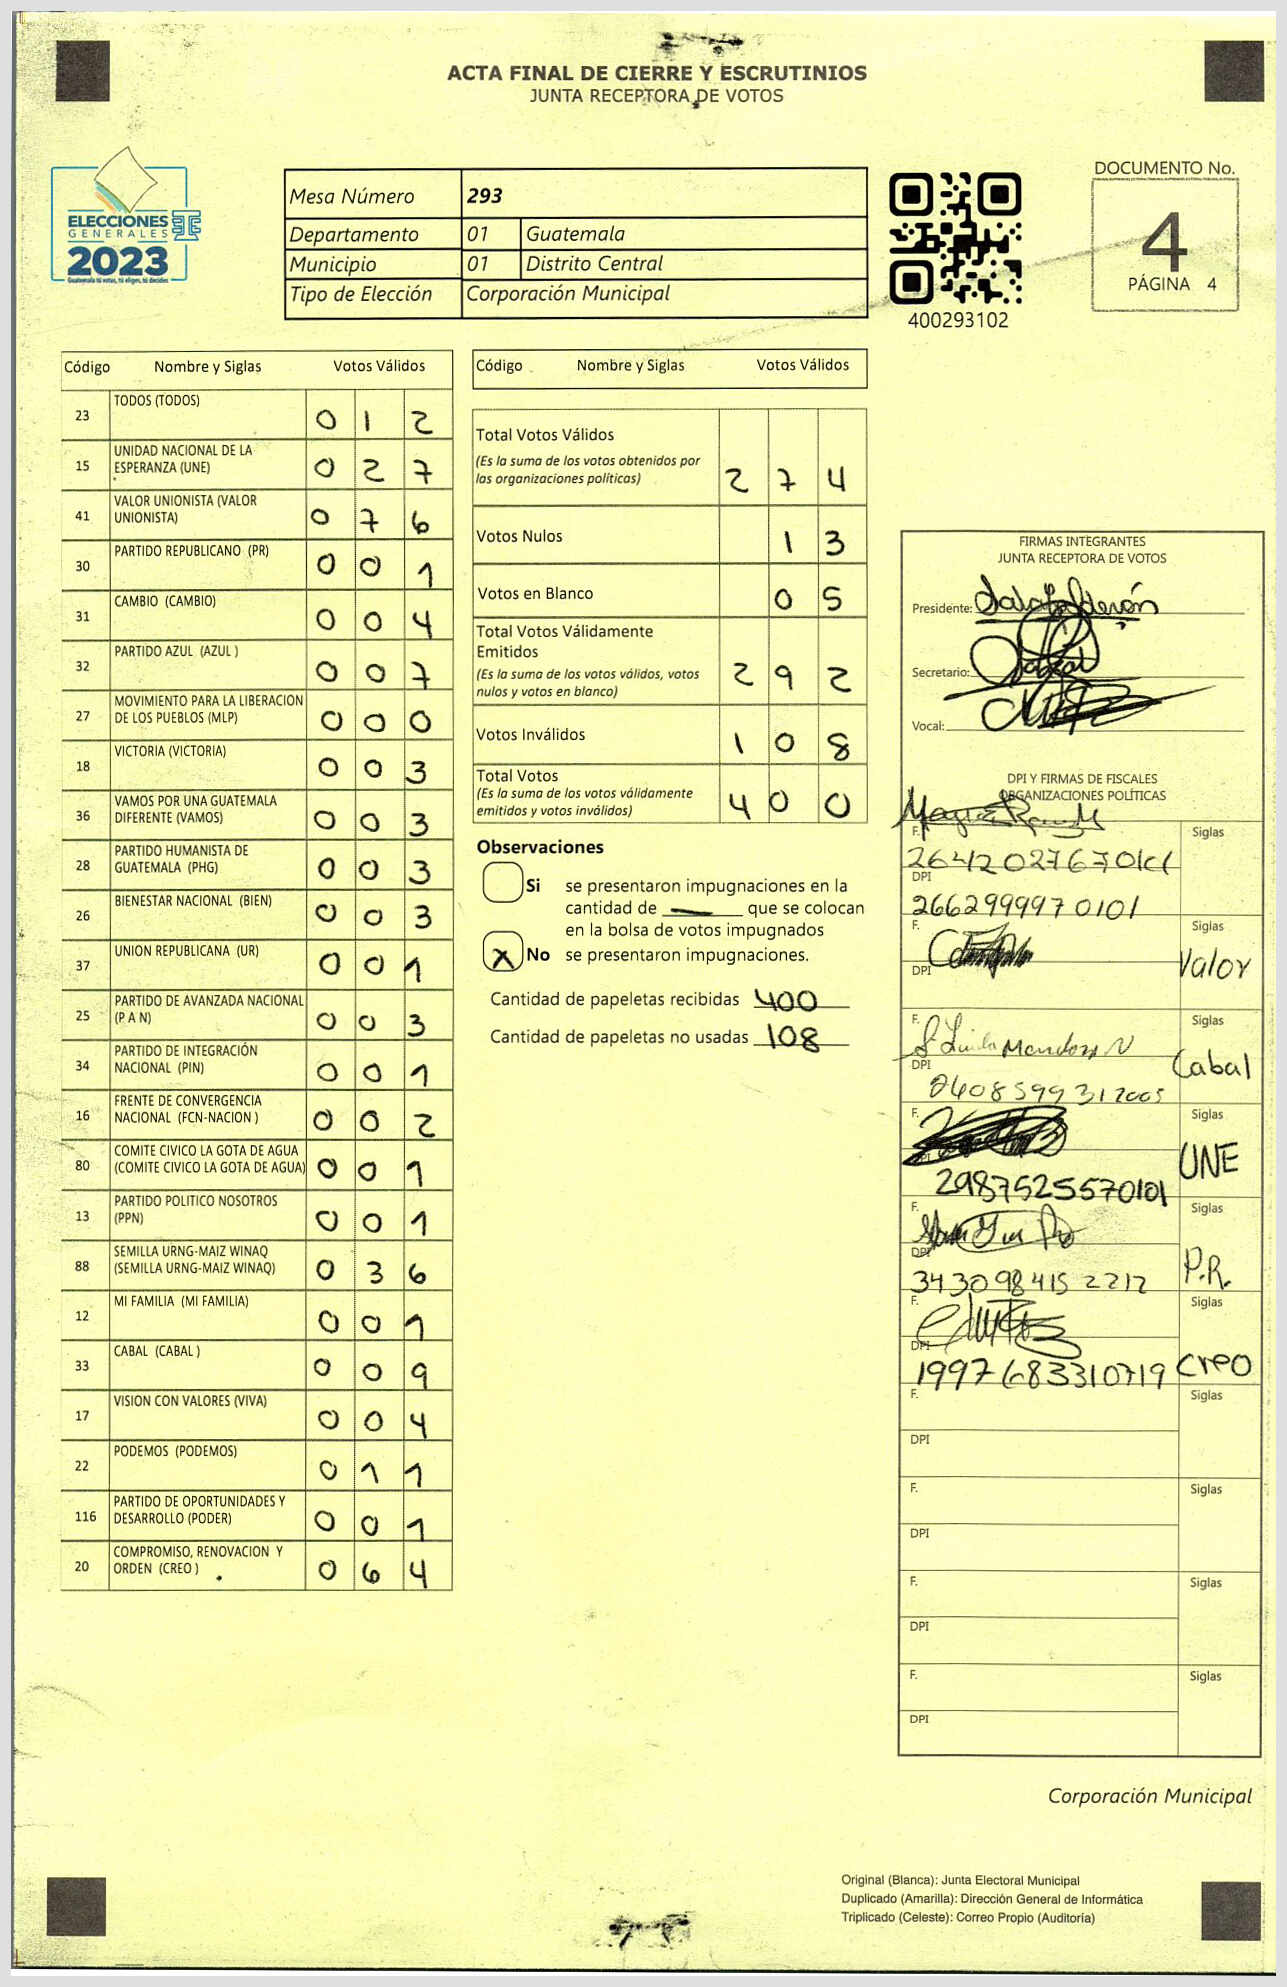 ACTA FINAL DE CIERRE Y ESCRUTINIOS
JUNTA RECEPTORA DE VOTOS
ELECCIONES
GENERALES
2023
Guatemala tú votas, tú eliges, tú decides
Mesa Número 293
Departamento 01 Guatemala
Municipio 01 Distrito Central
Tipo de Elección Corporación Municipal
400293102
DOCUMENTO No.
4
PÁGINA 4
Código Nombre y Siglas Votos Válidos
23 TODOS (TODOS) 0 1 2
15 UNIDAD NACIONAL DE LA
ESPERANZA (UNE) 0 2 7
41 VALOR UNIONISTA (VALOR
UNIONISTA) 0 7 6
30 PARTIDO REPUBLICANO (PR) 0 0 1
31 CAMBIO (CAMBIO) 0 0 4
32 PARTIDO AZUL (AZUL ) 0 0 7
27 MOVIMIENTO PARA LA LIBERACION
DE LOS PUEBLOS (MLP) 0 0 0
18 VICTORIA (VICTORIA) 0 0 3
36 VAMOS POR UNA GUATEMALA
DIFERENTE (VAMOS) 0 0 3
28 PARTIDO HUMANISTA DE
GUATEMALA (PHG) 0 0 3
26 BIENESTAR NACIONAL (BIEN) 0 0 3
37 UNION REPUBLICANA (UR) 0 0 1
25 PARTIDO DE AVANZADA NACIONAL
(P A N) 0 0 3
34 PARTIDO DE INTEGRACIÓN
NACIONAL (PIN) 0 0 1
16 FRENTE DE CONVERGENCIA
NACIONAL (FCN-NACION ) 0 0 2
80 COMITE CIVICO LA GOTA DE AGUA
(COMITE CIVICO LA GOTA DE AGUA) 0 0 1
13 PARTIDO POLITICO NOSOTROS
(PPN) 0 0 1
88 SEMILLA URNG-MAIZ WINAQ
(SEMILLA URNG-MAIZ WINAQ) 0 3 6
12 MI FAMILIA (MI FAMILIA) 0 0 1
33 CABAL (CABAL ) 0 0 9
17 VISION CON VALORES (VIVA) 0 0 4
22 PODEMOS (PODEMOS) 0 1 1
116 PARTIDO DE OPORTUNIDADES Y
DESARROLLO (PODER) 0 0 1
20 COMPROMISO, RENOVACION Y
ORDEN (CREO ) 0 6 4
Código Nombre y Siglas Votos Válidos
Total Votos Válidos
(Es la suma de los votos obtenidos por
las organizaciones políticas) 2 7 4
Votos Nulos 1 3
Votos en Blanco 0 5
Total Votos Válidamente
Emitidos
(Es la suma de los votos válidos, votos
nulos y votos en blanco) 2 9 2
Votos Inválidos 1 0 8
Total Votos
(Es la suma de los votos válidamente
emitidos y votos inválidos) 4 0 0
Observaciones
Si se presentaron impugnaciones en la
cantidad de que se colocan
en la bolsa de votos impugnados
X No se presentaron impugnaciones.
Cantidad de papeletas recibidas 400
Cantidad de papeletas no usadas 108
FIRMAS INTEGRANTES
JUNTA RECEPTORA DE VOTOS
Presidente:
Secretario:
Vocal:
DPI Y FIRMAS DE FISCALES
ORGANIZACIONES POLÍTICAS
F. Siglas
DPI
2662999970101
F. Siglas
DPI Valor
F. Siglas
Mendoza N
DPI Cabal
2408599312005
F. Siglas
DPI UNE
2987525570101
F. Siglas
DPI P.R.
3430984152212
F. Siglas
DPI Creo
1997683310719
F. Siglas
DPI
F. Siglas
DPI
F. Siglas
DPI
F. Siglas
DPI
Corporación Municipal
Original (Blanca): Junta Electoral Municipal
Duplicado (Amarilla): Dirección General de Informática
Triplicado (Celeste): Correo Propio (Auditoría)